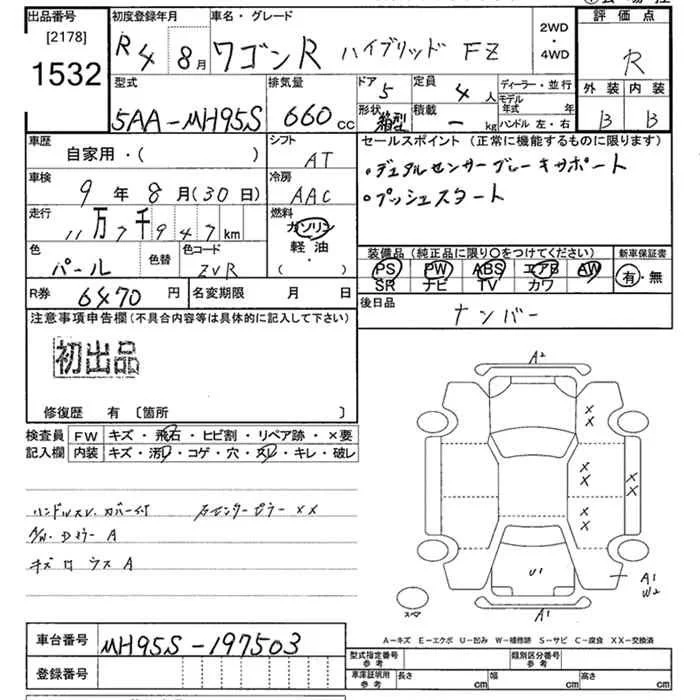 出品番号 初度登録年月 車名・グレード 評価点
[2178]
1532
R4 8月 ワゴンR ハイブリッド FZ 2WD・4WD R
型式 排気量 ドア 定員 ディーラー・並行 外装 内装
5AA-MH95S 660cc 5 4人 モデル年式 年
形状 箱型 積載 ー kg ハンドル 左・右 B B
車歴 シフト セールスポイント (正常に機能するものに限ります)
自家用・( ) AT ・デュアルセンサーブレーキサポート
車検 冷房 ・プッシュスタート
9年8月(30日) AAC
走行 燃料
11万7千947km ガソリン
軽油
( )
色 色替 色コード 装備品(純正品に限り○をつけてください) 新車保証書
パール ZVR PS PW ABS エアB AW 有・無
SR ナビ TV カワ
R券 6470円 名変期限 月 日 後日品
ナンバー
注意事項申告欄(不具合内容等は具体的に記入して下さい)
初出品
修復歴 有 〔箇所 〕
検査員 FW キズ・飛石・ヒビ割・リペア跡・×要
記入欄 内装 キズ・汚レ・コゲ・穴・スレ・キレ・破レ
ハンドルスレ カバー付 右センターピラー XX
A
A
A2
XX
XX
XX
XX
U1
A1
W2
A1
スペア
A-キズ E-エクボ U-凹み W-補修跡 S-サビ C-腐食 XX-交換済
車台番号 MH95S-197503
型式指定番号 参考 類別区分番号 参考
登録番号 車庫証明用 参考 長さ cm 幅 cm 高さ cm